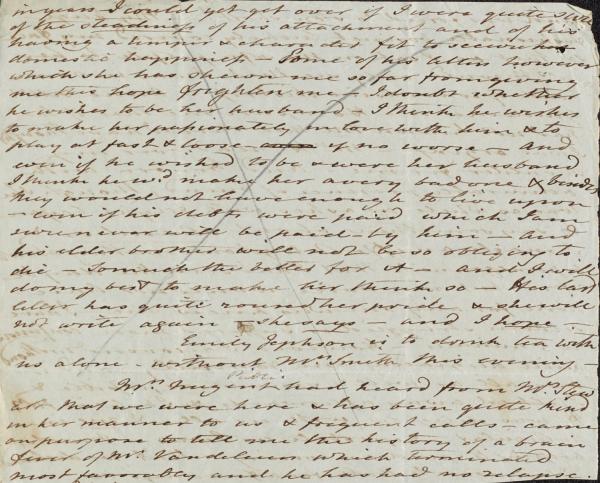 in years I could get get over if I were quite sure
of the steadiness of his attachment and of his
having a temper & character fit to secure her
domestic happiness – Some of his letters however
which she has shewn me so far from giving
me this hope frighten me – I doubt whether
he wishes to be her husband – I think he wishes
to make her passionately in love with him & to
play at fast & loose – if no worse – and
even if he wished to be & were her husband
I think he wd make her a very bad one & besides
they would not have enough to live upon
– even if his debts were paid which I am
sure never will be paid by him – and
his elder brother will not be so obliging to
die – So much the better for it – and I will
do my best to make her think so – His last
letter has quite roused her pride & she will
not write again – she says – and I hope –
Emily Jephson is to drink tea with
us alone – without Mrs Smith this evening
Mrs Nugent had heard from Mrs Stew
art that we were here & has been quite kind
in her manner to us & frequent calls – came
on purpose to tell me the history of a brain
fever of Mr Vandeleur which terminated
most favorably and he has had no relapse.